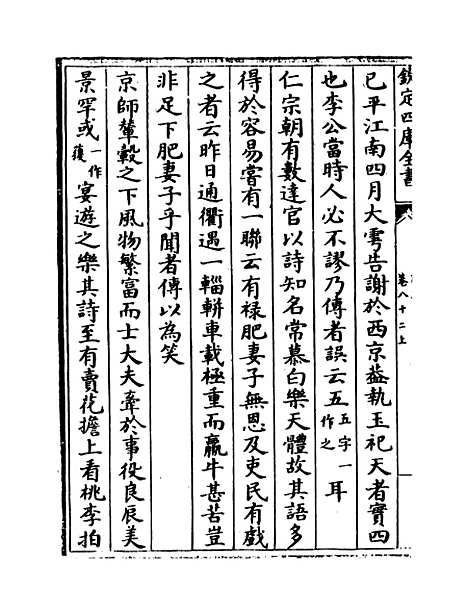 欽定四庫全書
卷八十二上
已平江南四月大雩告謝於西京葢執玉祀天者實四
也李公當時人必不謬乃傳者誤云五五字一作之耳
仁宗朝有數達官以詩知名常慕白樂天體故其語多
得於容易嘗有一聯云有禄肥妻子無恩及吏民有戲
之者云昨日通衢遇一輜軿車載極重而羸牛甚苦豈
非足下肥妻子乎聞者傳以為笑
京師輦轂之下風物繁富而士大夫牽於事役良辰美
景罕或一作獲宴遊之樂其詩至有賣花擔上看桃李拍